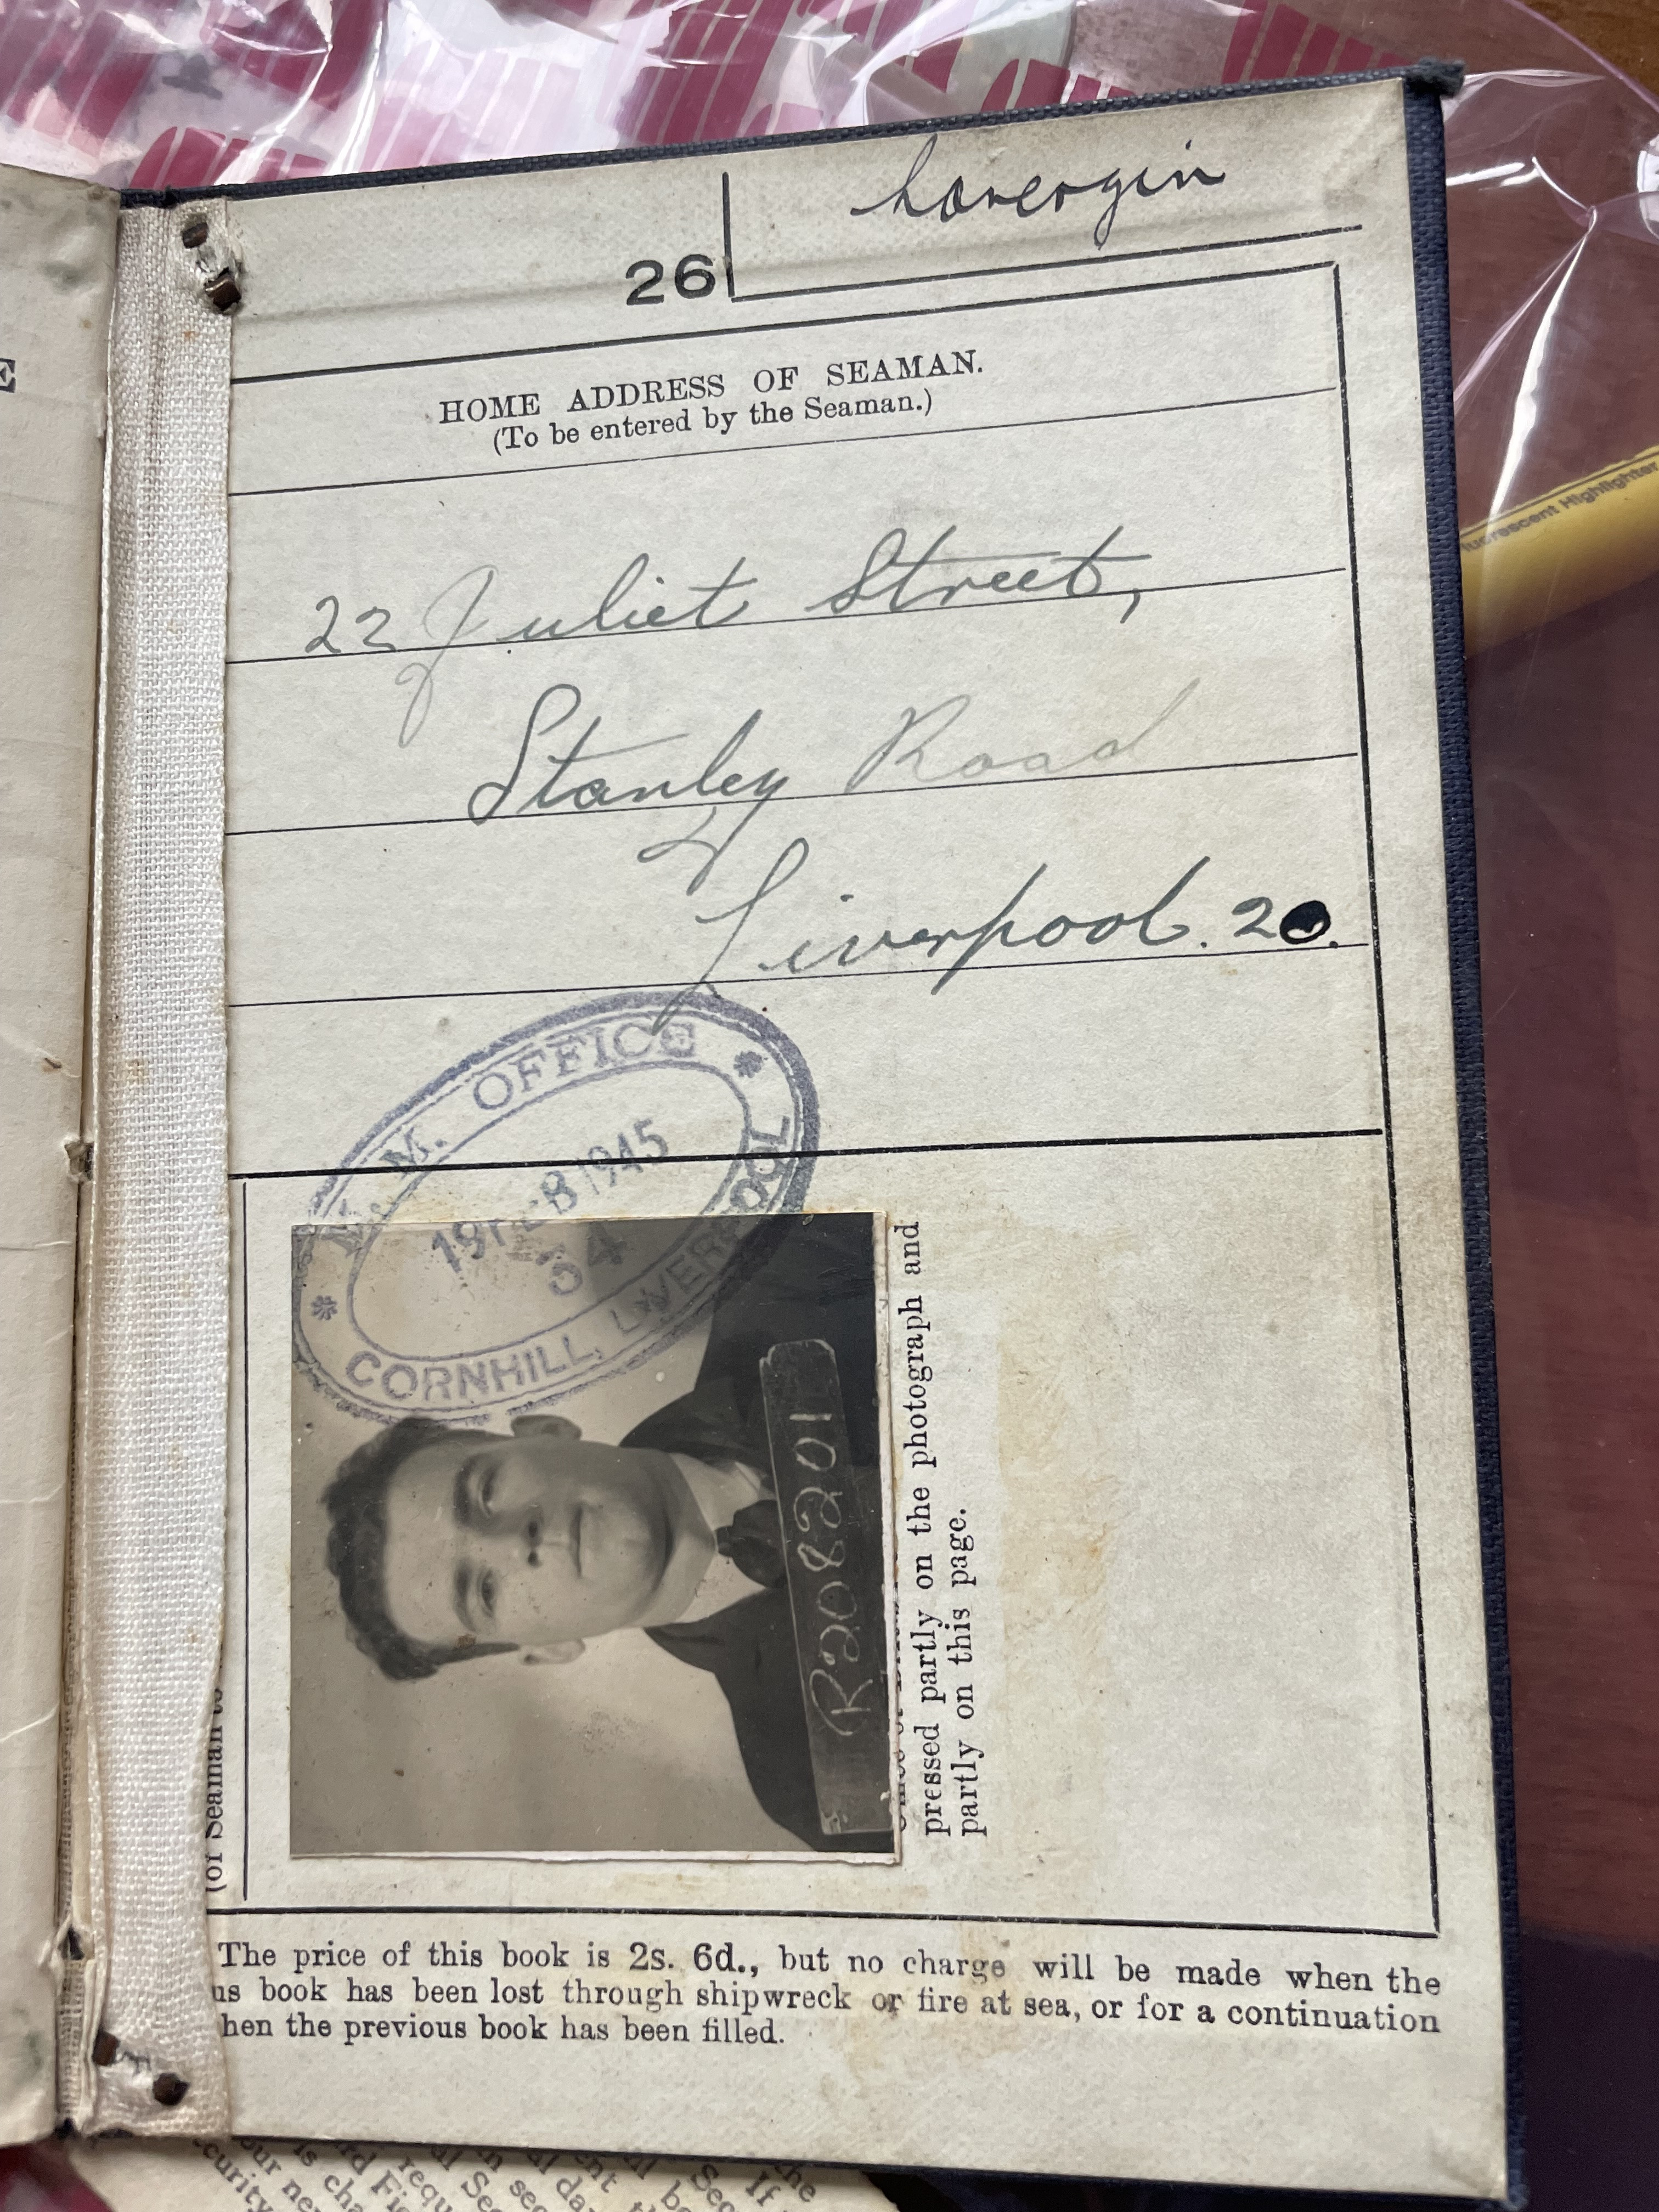 lovergin
26
HOME ADDRESS OF SEAMAN.
(To be entered by the Seaman.)
22 Juliet Street,
Stanley Road
Liverpool. 20.
M. M. OFFICE
19 FEB 1945
54
CORNHILL, LIVERPOOL
R208201
pressed partly on the photograph and
partly on this page.
(of Seaman to
The price of this book is 2s. 6d., but no charge will be made when the
us book has been lost through shipwreck or fire at sea, or for a continuation
hen the previous book has been filled.
E
Highlighter